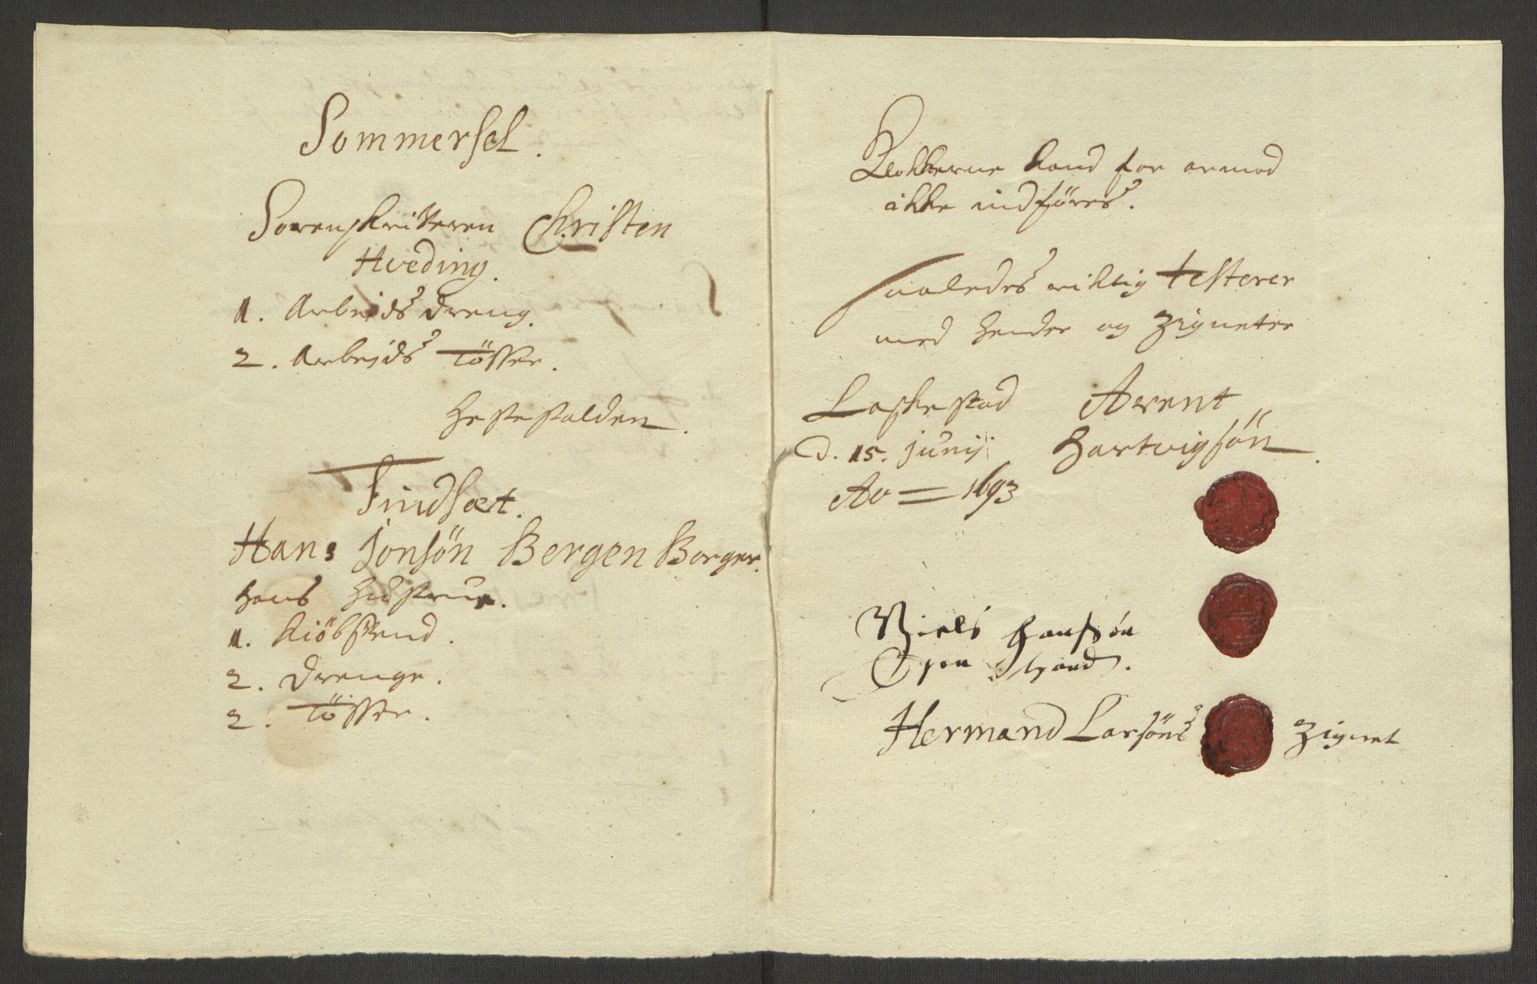 Sommersel.
Sorenskriveren Christen
Hveding.
1. Arbeids dreng.
2. Arbejds Tösser.
Hestestalden.
Findsæt.
Hans Jonsön Bergen Borger.
Hans Hustrue.
1. Kiöbsvend.
2. Drenge.
2. Tösser.
Klokkerne kand for armod
ikke indföres.
Saaledes riktig testerer
med hender og Zigneter
Laskestad
d. 15. Junij
Ao = 1693
Arent
Hartvigsön.
Niels Hansön
Hermand Larsöns Zignet